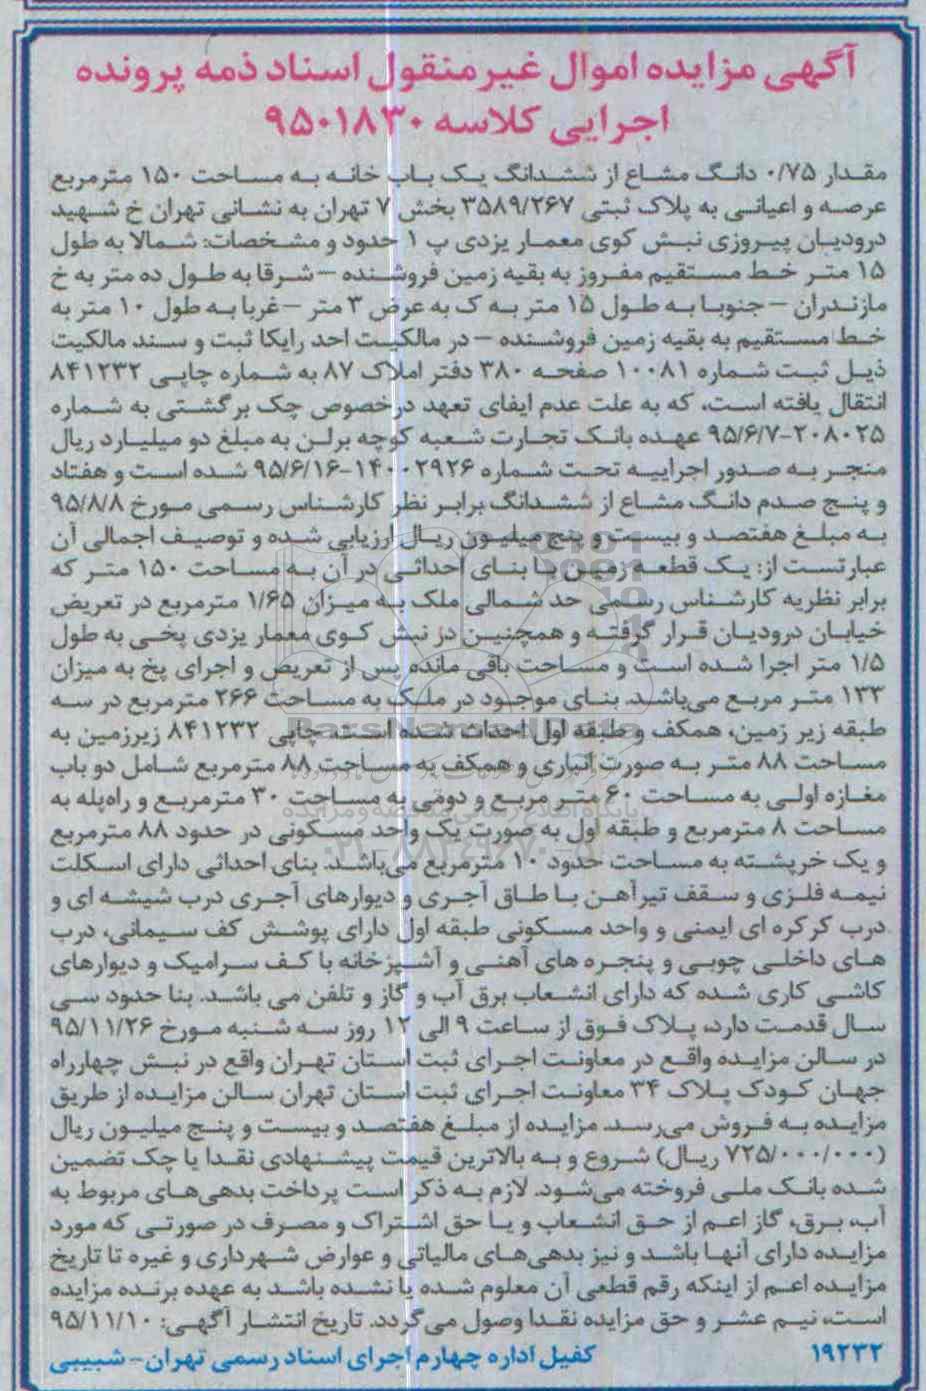 آگهی مزایده اموال غیرمنقول اسناد ذمه پرونده
اجرایی کلاسه ۹۵۰۱۸۳۰
مقدار ۰/۷۵ دانگ مشاع از ششدانگ یک باب خانه به مساحت ۱۵۰ مترمربع
عرصه و اعیانی به پلاک ثبتی ۳۵۸۹/۲۶۷ بخش ۷ تهران به نشانی تهران خ شهید
درودیان پیروزی نبش کوی معمار یزدی پ ۱ حدود و مشخصات: شمالا به طول
۱۵ متر خط مستقیم مفروز به بقیه زمین فروشنده – شرقا به طول ده متر به خ
مازندران – جنوبا به طول ۱۵ متر به ک به عرض ۳ متر – غربا به طول ۱۰ متر به
خط مستقیم به بقیه زمین فروشنده – در مالکیت احد رایکا ثبت و سند مالکیت
ذیل ثبت شماره ۱۰۰۸۱ صفحه ۳۸۰ دفتر املاک ۸۷ به شماره چاپی ۸۴۱۲۳۲
انتقال یافته است، که به علت عدم ایفای تعهد درخصوص چک برگشتی به شماره
۲۰۸۰۲۵-۹۵/۶/۷ عهده بانک تجارت شعبه کوچه برلن به مبلغ دو میلیارد ریال
منجر به صدور اجراییه تحت شماره ۱۴۰۰۲۹۲۶-۹۵/۶/۱۶ شده است و هفتاد
و پنج صدم دانگ مشاع از ششدانگ برابر نظر کارشناس رسمی مورخ ۹۵/۸/۸
به مبلغ هفتصد و بیست و پنج میلیون ریال ارزیابی شده و توصیف اجمالی آن
عبارتست از: یک قطعه زمین با بنای احداثی در آن به مساحت ۱۵۰ متر که
برابر نظریه کارشناس رسمی حد شمالی ملک به میزان ۱/۶۵ مترمربع در تعریض
خیابان درودیان قرار گرفته و همچنین در نبش کوی معمار یزدی پخی به طول
۱/۵ متر اجرا شده است و مساحت باقی مانده پس از تعریض و اجرای پخ به میزان
۱۳۳ متر مربع می‌باشد. بنای موجود در ملک به مساحت ۲۶۶ مترمربع در سه
طبقه زیر زمین، همکف و طبقه اول احداث شده است چاپی ۸۴۱۲۳۲ زیرزمین به
مساحت ۸۸ متر به صورت انباری و همکف به مساحت ۸۸ مترمربع شامل دو باب
مغازه اولی به مساحت ۶۰ متر مربع و دومی به مساحت ۳۰ مترمربع و راه‌پله به
مساحت ۸ مترمربع و طبقه اول به صورت یک واحد مسکونی در حدود ۸۸ مترمربع
و یک خرپشته به مساحت حدود ۱۰ مترمربع می‌باشد. بنای احداثی دارای اسکلت
نیمه فلزی و سقف تیرآهن با طاق آجری و دیوارهای آجری درب شیشه ای و
درب کرکره ای ایمنی و واحد مسکونی طبقه اول دارای پوشش کف سیمانی، درب
های داخلی چوبی و پنجره های آهنی و آشپزخانه با کف سرامیک و دیوارهای
کاشی کاری شده که دارای انشعاب برق آب و گاز و تلفن می باشد. بنا حدود سی
سال قدمت دارد، پلاک فوق از ساعت ۹ الی ۱۲ روز سه شنبه مورخ ۹۵/۱۱/۲۶
در سالن مزایده واقع در معاونت اجرای ثبت استان تهران واقع در نبش چهارراه
جهان کودک پلاک ۳۴ معاونت اجرای ثبت استان تهران سالن مزایده از طریق
مزایده به فروش می‌رسد. مزایده از مبلغ هفتصد و بیست و پنج میلیون ریال
(۷۲۵/۰۰۰/۰۰۰ ریال) شروع و به بالاترین قیمت پیشنهادی نقدا یا چک تضمین
شده بانک ملی فروخته می‌شود. لازم به ذکر است پرداخت بدهی‌های مربوط به
آب، برق، گاز اعم از حق انشعاب و یا حق اشتراک و مصرف در صورتی که مورد
مزایده دارای آنها باشد و نیز بدهی‌های مالیاتی و عوارض شهرداری و غیره تا تاریخ
مزایده اعم از اینکه رقم قطعی آن معلوم شده یا نشده باشد به عهده برنده مزایده
است، نیم عشر و حق مزایده نقدا وصول می‌گردد. تاریخ انتشار آگهی: ۹۵/۱۱/۱۰
۱۹۲۳۲ کفیل اداره چهارم اجرای اسناد رسمی تهران- شبیبی